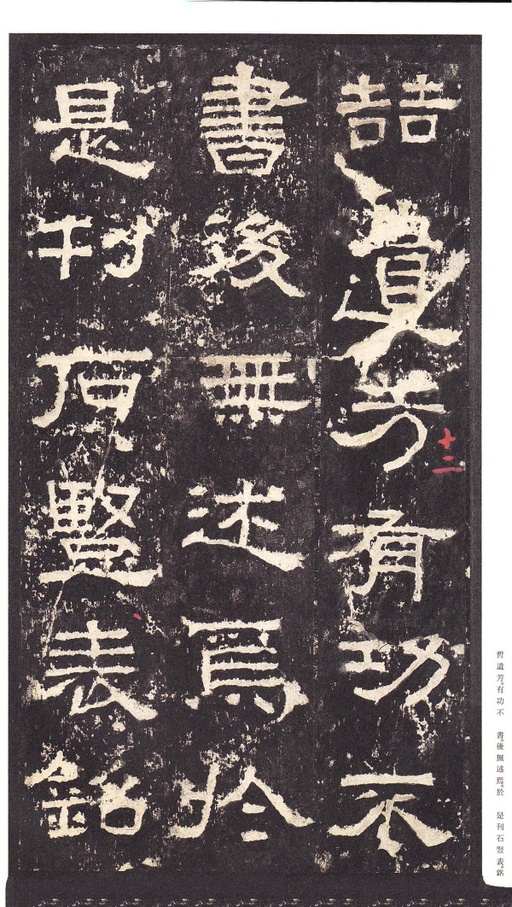 喆遺芳有功不
十二
書後無述焉於
是刊石竪表銘
哲遺芳。有功不　書。後無述焉。於　是刊石竪表。銘